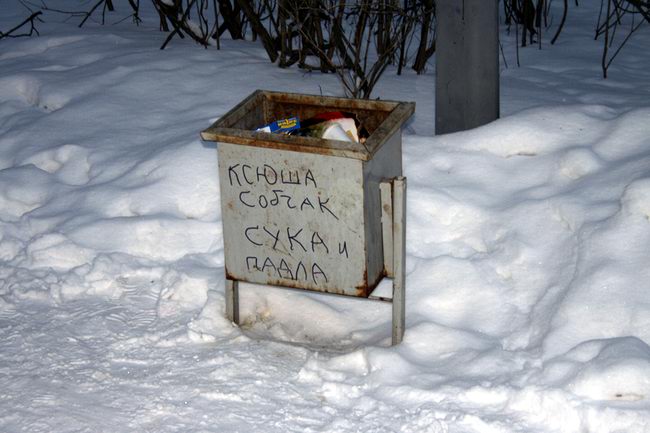 КСЮША
СОбЧАК
СУКА И
ПАДЛА